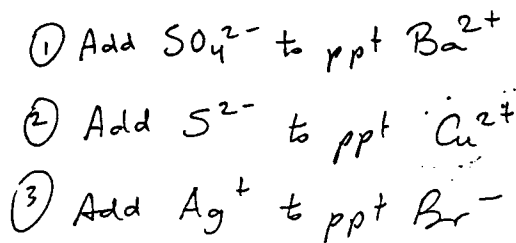 ① Add SO₄²⁻ to ppt Ba²⁺
② Add S²⁻ to ppt Cu²⁺
③ Add Ag⁺ to ppt Br⁻